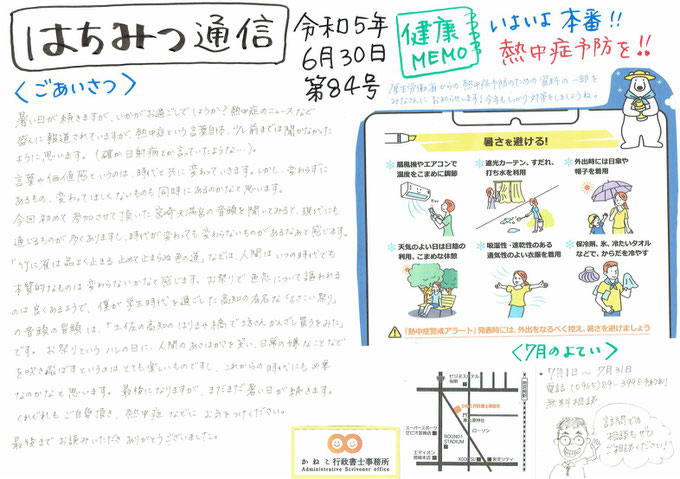 はちみつ通信
令和5年
6月30日
第84号
健康
MEMO
いよいよ本番!!
熱中症予防を!!
厚生労働省からの熱中症予防のための資料の一部を
みなさんにお知らせします!今年もしっかり対策をしましょうね。
<ごあいさつ>
暑い日が続きますが、いかがお過ごしでしょうか?熱中症のニュースなど
盛んに報道されていますが、熱中症という言葉自体、少し前までは聞かなかった
ように思います。(確か日射病とか言っていたような…)。
言葉や価値感というのは、時代と共に変わっていきます。しかし、変わらずに
あるもの、変わってほしくないものも同時にあるのかなと思います。
今回初めて参加させて頂いた宮崎天満宮の音頭を聞いてみると、現代にも
通じるものが多くありますし、時代が変わっても変わらないものがあるなあと感じます。
は品よく止まる 止めて止まらぬ色の道」などは、人間はいつの時代でも
本質的なものは変わらないかなと感じます。お祭りで色恋について謳われる
のは良くあるようで、僕が学生時代を過ごした高知の有名な「よさこい祭り」
の音頭の冒頭は、「土佐の高知のはりまや橋で坊さんかんざし買うをみた」
です。お祭りというハレの日に、人間のあさはかさを笑い、日常の嫌なことなど
を吹き飛ばすというのはとても楽しいものですし、これからの時代にも必要
なのかなと思います。最後になりますが、まだまだ暑い日が続きます。
くれぐれもご自愛頂き、熱中症などにお気をつけください。
最後までお読みいただきありがとうございました。
暑さを避ける!
扇風機やエアコンで
温度をこまめに調節
遮光カーテン、すだれ、
打ち水を利用
外出時には日傘や
帽子を着用
天気のよい日は日陰の
利用、こまめな休憩
吸湿性・速乾性のある
通気性のよい衣服を着用
保冷剤、氷、冷たいタオル
などで、からだを冷やす
「熱中症警戒アラート」発表時には、外出をなるべく控え、暑さを避けましょう
<7月のよてい>
7月1日~7月31日
電話(0985)89-3998
無料相談
訪問での
相談もぜひ
ご相談ください!
かねこ行政書士事務所
Administrative Scrivener office
かねこ行政書士事務所
ローソン
ROUND1
STADIUM
エディオン